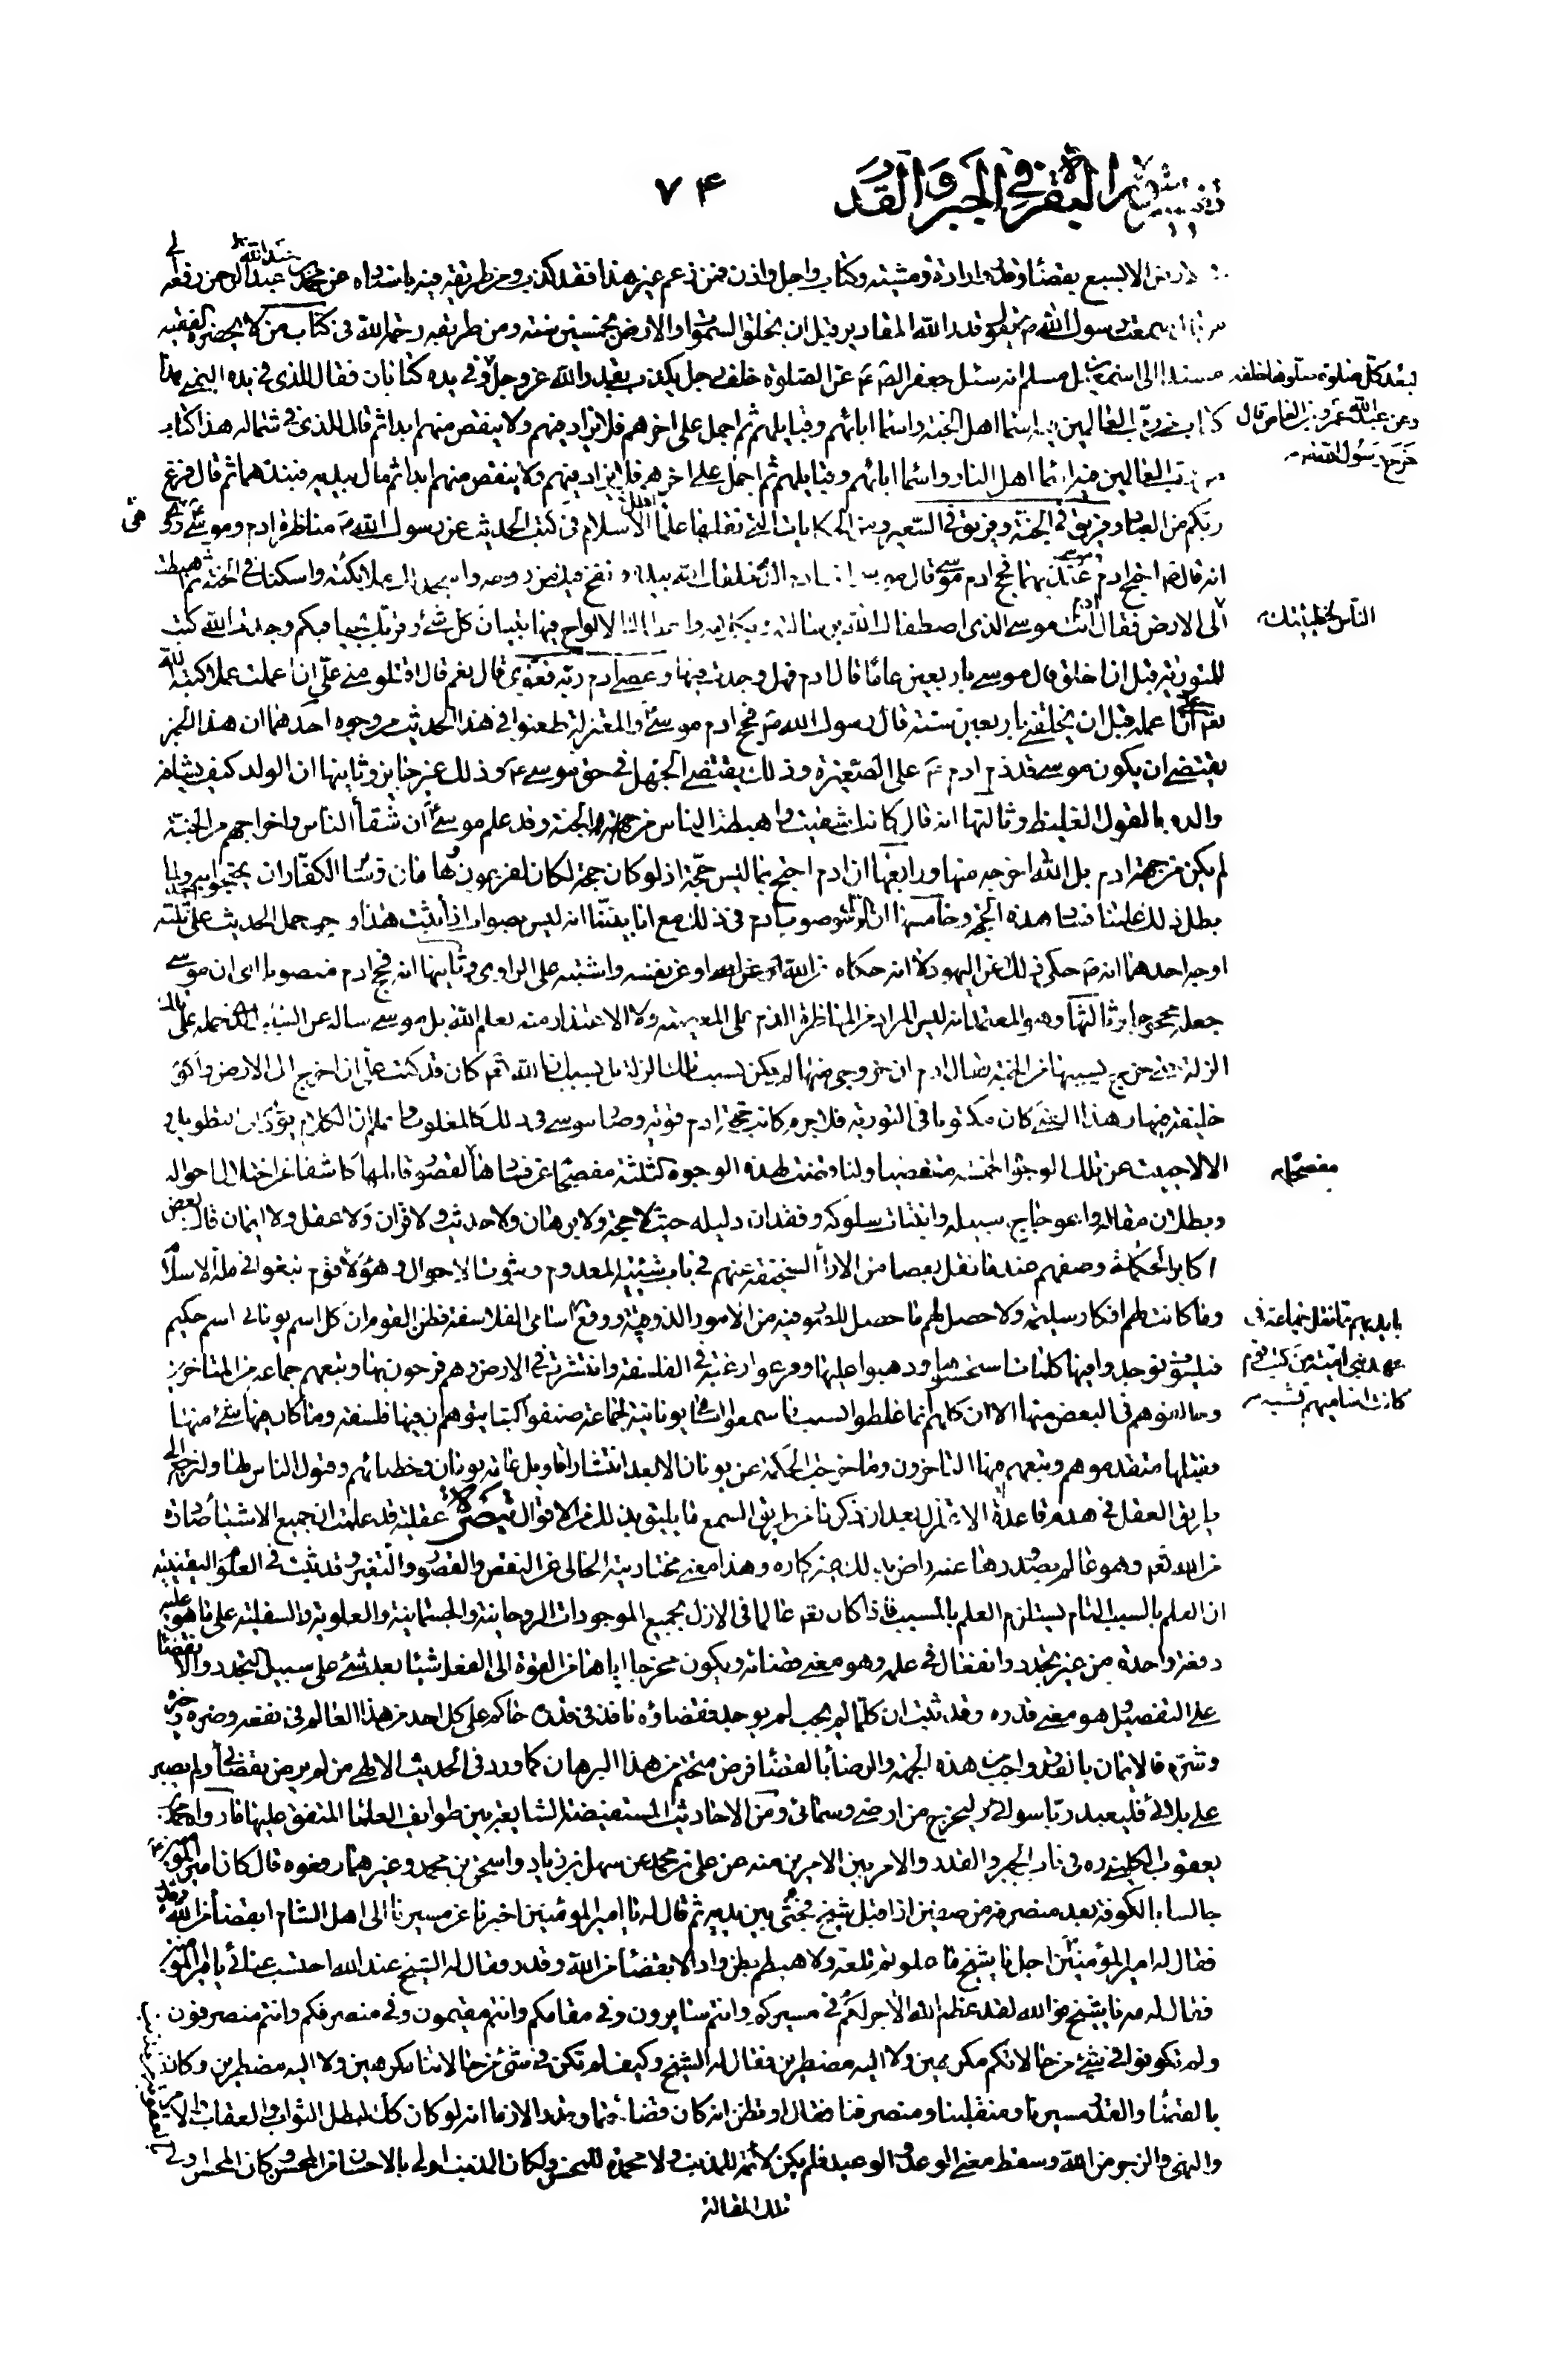 تفسير سورة البقرة في الجبر والقدر ٧٤
الارض الا بسبع بقضاء وقدر وارادة ومشيئة وكتاب واجل واذن فمن زعم غير هذا فقد كذب ومن طريقهم فيه باسناده عن محمد بن عبد الله عبد الرحمن رفعه الى
سمعت رسول الله ص يقول قدر الله المقادير قبل ان يخلق السموات والارض بخمسين سنة ومن طريقهم رحمه الله في كتاب من لا يحضره الفقيه
مسندا الى اسمعيل بن مسلم انه سئل جعفر الصادق ع عن الصلوة خلف رجل يكذب بقدر الله عز وجل وفي يده كتابان فقال للذي في يده اليمنى هذا
لبعد كل صلوة صلوها خلفه
وعن عبد الله عمرو بن العاص قال
خرج رسول الله ص
كتاب من رب العالمين فيه اسماء اهل الجنة واسماء ابائهم وقبايلهم ثم اجمل على اخرهم فلا يزاد فيهم ولا ينقص منهم ابدا ثم قال للذي في شماله هذا كتاب
من رب العالمين فيه اسماء اهل النار واسماء ابائهم وقبايلهم ثم اجمل على اخرهم فلا يزاد فيهم ولا ينقص منهم ابدا ثم قال بيديه فنبذهما ثم قال فرغ
ربكم من العباد فريق في الجنة وفريق في السعير ومن الحكايات التي نقلها علماء الاسلام في كتب الحديث عن رسول الله ص مناظرة ادم وموسى ع
انه قال ص احتج ادم وموسى عند ربهما فحج ادم موسى قال موسى انت ادم الذي خلقك الله بيده ونفخ فيك من روحه واسجد لك ملائكته واسكنك في الجنة ثم هبطت
الناس بخطيئتك
الى الارض فقال ادم انت موسى الذي اصطفاك الله برسالته وبكلامه واعطاك الالواح فيها تبيان كل شئ وقربك نجيا فبكم وجدت الله كتب
للتورية قبل ان اخلق قال موسى باربعين عاما قال ادم فهل وجدت فيها وعصى ادم ربه فغوى قال نعم قال افتلومني على ان عملت عملا كتبه الله
على ان اعمله قبل ان يخلقني باربعين سنة قال رسول الله ص فحج ادم موسى والمعتزلة طعنوا في هذا الحديث من وجوه احدها ان هذا الخبر
يقتضي ان يكون موسى قد ذم ادم ع على الصغيرة وذلك يقتضي الجهل في حق موسى ع وذلك غير جايز وثانيها ان الولد كيف يشافه
والده بالقول الغليظ وثالثها انه قال كانك اشقيت واهبطت الناس من الجنة وقد علم موسى ان شقاء الناس واخراجهم من الجنة
لم يكن من جهة ادم بل الله اخرجه منها ورابعها ان ادم احتج بما ليس حجة اذ لو كان حجة لكان لفرعون وهامان وسائر الكفار ان يحتجوا بها ولما
بطل ذلك علمنا فساد هذه الحجة وخامسها ان الرسول صوب ادم في ذلك مع انا بينا انه ليس بصواب اذا ثبت هذا وجب حمل الحديث على ثلثة
اوجه احدها انه ص حكى ذلك عن اليهود لا انه حكاه عن الله او عن نفسه واشتبه على الراوي وثانيها انه فحج ادم منصوبا اي ان موسى
جعله محجوجا وثالثها وهو المعتمد انه ليس المراد من المناظرة الذم على المعصية ولا الاعتذار منه بعلم الله بل موسى سأله عن السبب الذي حمله على تلك
الزلة حتى خرج بسببها من الجنة فقال ادم ان خروجي منها لم يكن بسبب تلك الزلة بل بسبب ان الله تعالى كان قد كتب على ان اخرج الى الارض واكون
خليفة فيها وهذا المعنى كان مكتوبا في التورية فلا جرم كانت حجة ادم قوية وصار موسى في ذلك كالمغلوب
لا اجيب عن تلك الوجوه الخمسة متفصيا ولنا وقمت لهذه الوجوه كثلثة مفصحا عن فساد هذا لقصور قائلها كاشفا عن اختلال احواله
مفصحا
وبطلان مقاله واعوجاج سبيله وانبتات سلوكه وفقدان دليله حيث لا حجة ولا برهان ولا حديث ولا قران ولا عقل ولا ايمان قال بعض
اكابر الحكماء وصفهم عند ما نقل بعضا من الاراء السخيفة عنهم في باب شيئية المعدوم وثبوت الاحوال وهؤلاء قوم نبغوا في ملة الاسلام
وما كانت لهم افكار سليمة ولا حصل لهم ما حصل للصوفية من الامور الذوقية ووقع
بايديهم مما نقل جماعة في
عهد بني امية من كتب قوم
كانت اساميهم تشبه
اسامي الفلاسفة فظن القوم ان كل اسم يوناني اسم حكيم
فيلسوف فوجدوا فيها كلمات استحسنوها وذهبوا عليها وفرعوا رغبة في الفلسفة وانتشرت في الارض وهم فرحون بها وتبعهم جماعة من المتاخرين
وخالفوهم في البعض منها الا ان كلهم انما غلطوا بسبب ما سمعوا اسامي يونانية لجماعة صنفوا كتبا يتوهم ان فيها فلسفة وما كان فيها شئ منها
فقبلها متقدموهم وتبعهم فيها المتاخرون وما خرجت الحكمة عن يونان الا بعد انتشار اقاويل عامة يونان وخطبائهم وقبول الناس لها ولنرجع الى
طريق العقل في هدم قاعدة الاعتزال بعد ان ذكرنا من طريق السمع ما يليق بذلك من الاقوال تبصرة عقلية قد علمت ان جميع الاشياء صادرة
من الله تعالى وهو عالم بصدورها عنه راض بذلك غير كاره وهذا معنى مختاريته الخالي عن النقص والقصور والتغير وقد ثبت في العلوم اليقينية
ان العلم بالسبب التام يستلزم العلم بالمسبب فاذا كان تعالى عالما في الازل بجميع الموجودات الروحانية والجسمانية والعلوية والسفلية على ما هو عليه
دفعة واحدة من غير تجدد وانفعال في علمه وهو معنى قضائه ويكون مخرجا اياها من القوة الى الفعل شيئا بعد شئ على سبيل التجدد والانقضاء
على التفصيل هو معنى قدره وقد ثبت ان كلما لم يجب لم يوجد فقضاؤه نافذ في قدره حاكم على كل احد من هذا العالم في نفعه وضره وخيره
وشره فالايمان بالقدر واجب من هذه الجهة والرضاء بالقضاء فرض متحتم من هذا البرهان كما ورد في الحديث الالهي من لم يرض بقضائي ولم يصبر
على بلائي فليعبد ربا سوائي وليخرج من ارضي وسمائي ومن الاحاديث المستفيضة الشايعة بين طوايف العلماء المتفق عليها ما رواه محمد بن
يعقوب الكليني ره في باب الجبر والقدر والامر بين الامرين منه عن علي بن محمد عن سهل بن زياد واسحق بن محمد وغيرهما رفعوه قال كان امير المؤمنين ع
جالسا بالكوفة بعد منصرفه من صفين اذ اقبل شيخ فجثى بين يديه ثم قال له يا امير المؤمنين اخبرنا عن مسيرنا الى اهل الشام ابقضاء من الله وقدر
فقال له امير المؤمنين اجل يا شيخ ما علوتم تلعة ولا هبطتم بطن واد الا بقضاء من الله وقدر فقال له الشيخ عند الله احتسب عنائي يا امير المؤمنين
فقال له مه يا شيخ فوالله لقد عظم الله الاجر لكم في مسيركم وانتم سايرون وفي مقامكم وانتم مقيمون وفي منصرفكم وانتم منصرفون
ولم تكونوا في شئ من حالاتكم مكرهين ولا اليه مضطرين فقال له الشيخ وكيف لم تكن في شئ من حالاتنا مكرهين ولا اليه مضطرين وكان
بالقضاء والقدر مسيرنا ومنقلبنا ومنصرفنا فقال او تظن انه كان قضاء حتما وقدرا لازما انه لو كان كك لبطل الثواب والعقاب والامر
والنهي والزجر من الله وسقط معنى الوعد والوعيد فلم يكن لائمة للمذنب ولا محمدة للمحسن ولكان المذنب اولى بالاحسان من المحسن ولكان المحسن اولى
تلك المقالة